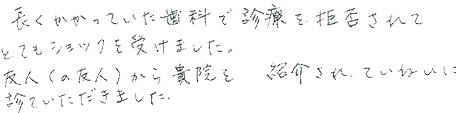 長くかかっていた歯科で診療を拒否されて
とてもショックを受けました。
友人(の友人)から貴院を 紹介され、ていねいに
診ていただきました.